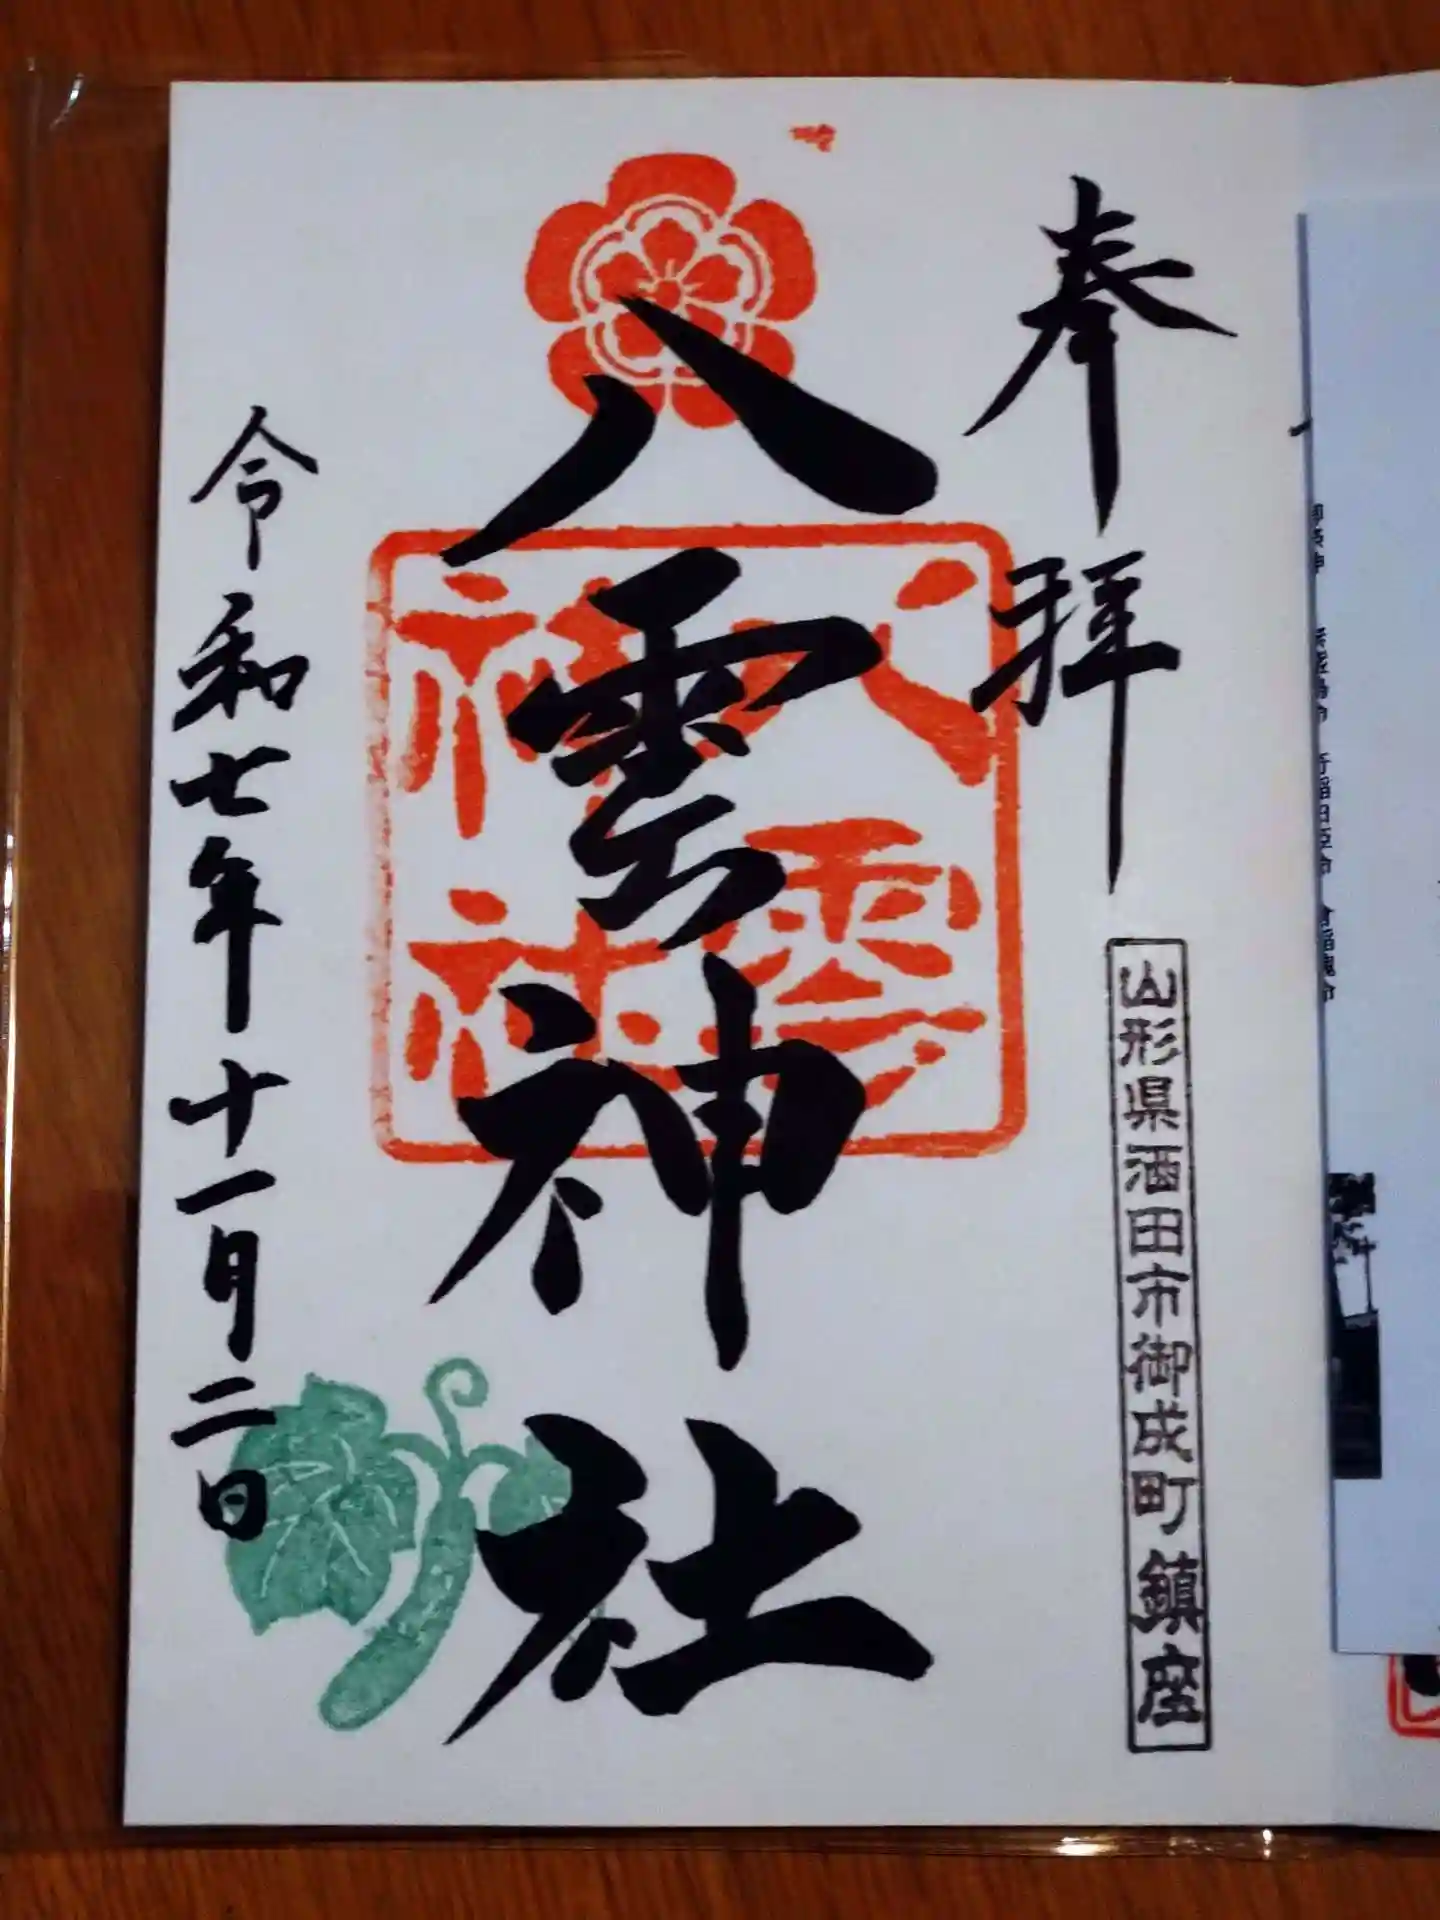 奉拝
山形県酒田市御成町鎮座
八雲神社
八雲神社
令和七年十一月二日